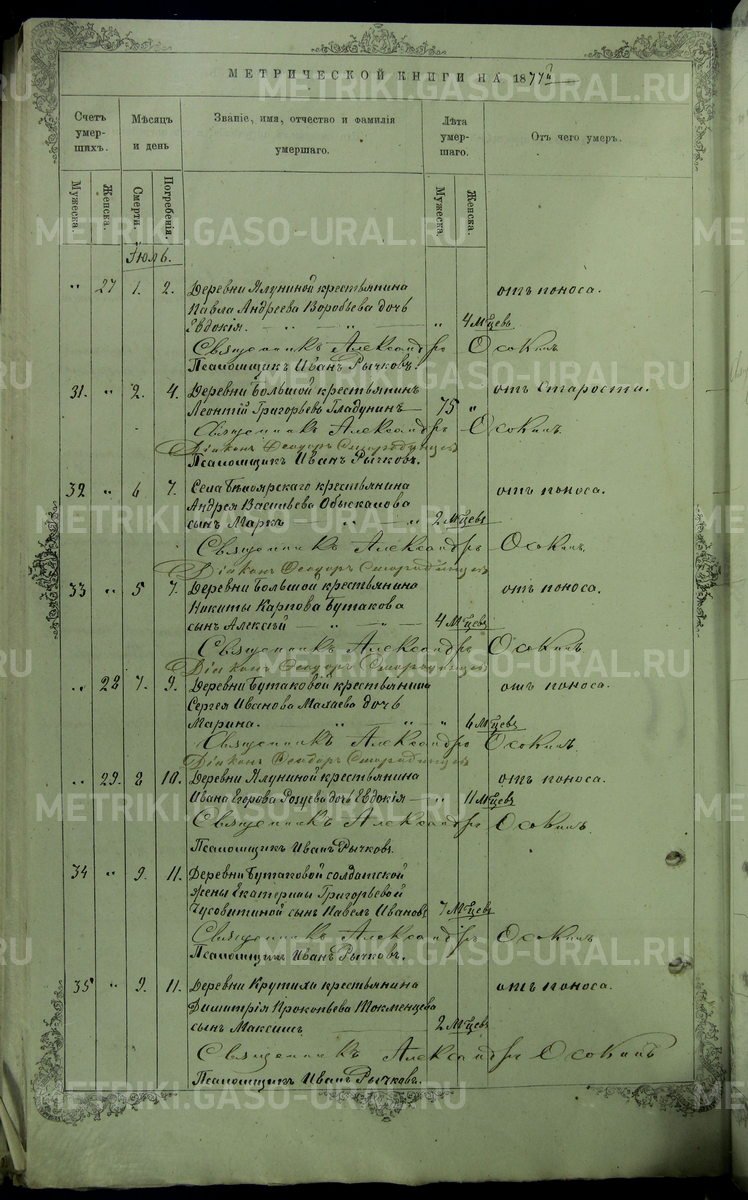 МЕТРИЧЕСКОЙ КНИГИ НА 1877й
Счетъ умершихъ.
Мѣсяцъ и день
Званіе, имя, отчество и фамилія умершаго.
Лѣта умершаго.
Отъ чего умеръ.
Мужеска.
Женска.
Смерти.
Погребенія.
Мужеска.
Женска.
Іюль.
" 27 1. 2. Деревни Ялуниной крестьянина отъ поноса.
Павла Андреева Воробьева дочь
Евдокія. " " " 4 М-цевъ
Священникъ Александръ Осокинъ
Псаломщикъ Иванъ Рычковъ.
31. " 2. 4. Деревни Большой крестьянинъ отъ Старости.
Леонтій Григорьевъ Гладунинъ 75 "
Священникъ Александръ Осокинъ.
Діаконъ Ѳеодоръ Смородинцевъ
Псаломщикъ Иванъ Рычковъ.
32 " 6 7. Села Бѣлоярскаго крестьянина отъ поноса.
Андрея Васильева Обыскалова
сынъ Маркъ " " 2 М-цевъ
Священникъ Александръ Осокинъ.
Діаконъ Ѳеодоръ Смородинцевъ
33 " 5 7. Деревни Большой крестьянина отъ поноса.
Никиты Карпова Бутакова
сынъ Алексѣй " 4 М-цевъ
Священникъ Александръ Осокинъ
Діаконъ Ѳеодоръ Смородинцевъ
" 28 7. 9. Деревни Бутаковой крестьянина отъ поноса.
Сергея Иванова Махаева дочь
Марина. " " " 6 М-цевъ
Священникъ Александръ Осокинъ
Діаконъ Ѳеодоръ Смородинцевъ
" 29. 8 10. Деревни Ялуниной крестьянина отъ поноса.
Ивана Егорова дочь Евдокія " 11 М-цевъ
Священникъ Александръ Осокинъ.
Псаломщикъ Иванъ Рычковъ.
34 " 9. 11. Деревни Бутаковой солдатской
жены Екатерины Григорьевой
Чусовитиной сынъ Павелъ Ивановъ 7 М-цевъ
Священникъ Александръ Осокинъ
Псаломщикъ Иванъ Рычковъ.
35 " 9. 11. Деревни Крутихи крестьянина отъ поноса.
Димитрія Прокопьева Токменцева
сынъ Максимъ 2 М-цевъ
Священникъ Александръ Осокинъ
Псаломщикъ Иванъ Рычковъ.
METRIKI.GASO-URAL.RU